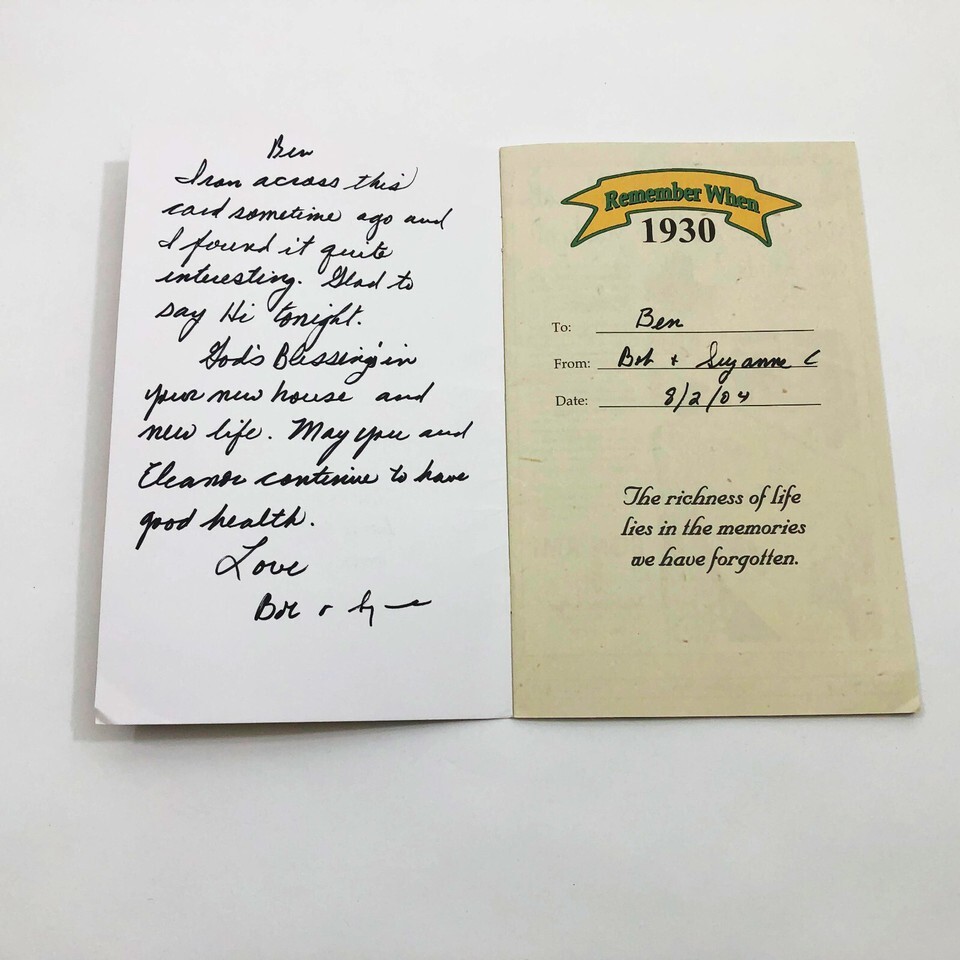 Ben
I ran across this
card sometime ago and
I found it quite
interesting. Glad to
say Hi tonight.
God's Blessing's in
your new house and
new life. May you and
Eleanor continue to have
good health.
Love
Bob +
Remember When
1930
To: Ben
From: Bob + Suzanne C
Date: 8/2/04
The richness of life
lies in the memories
we have forgotten.